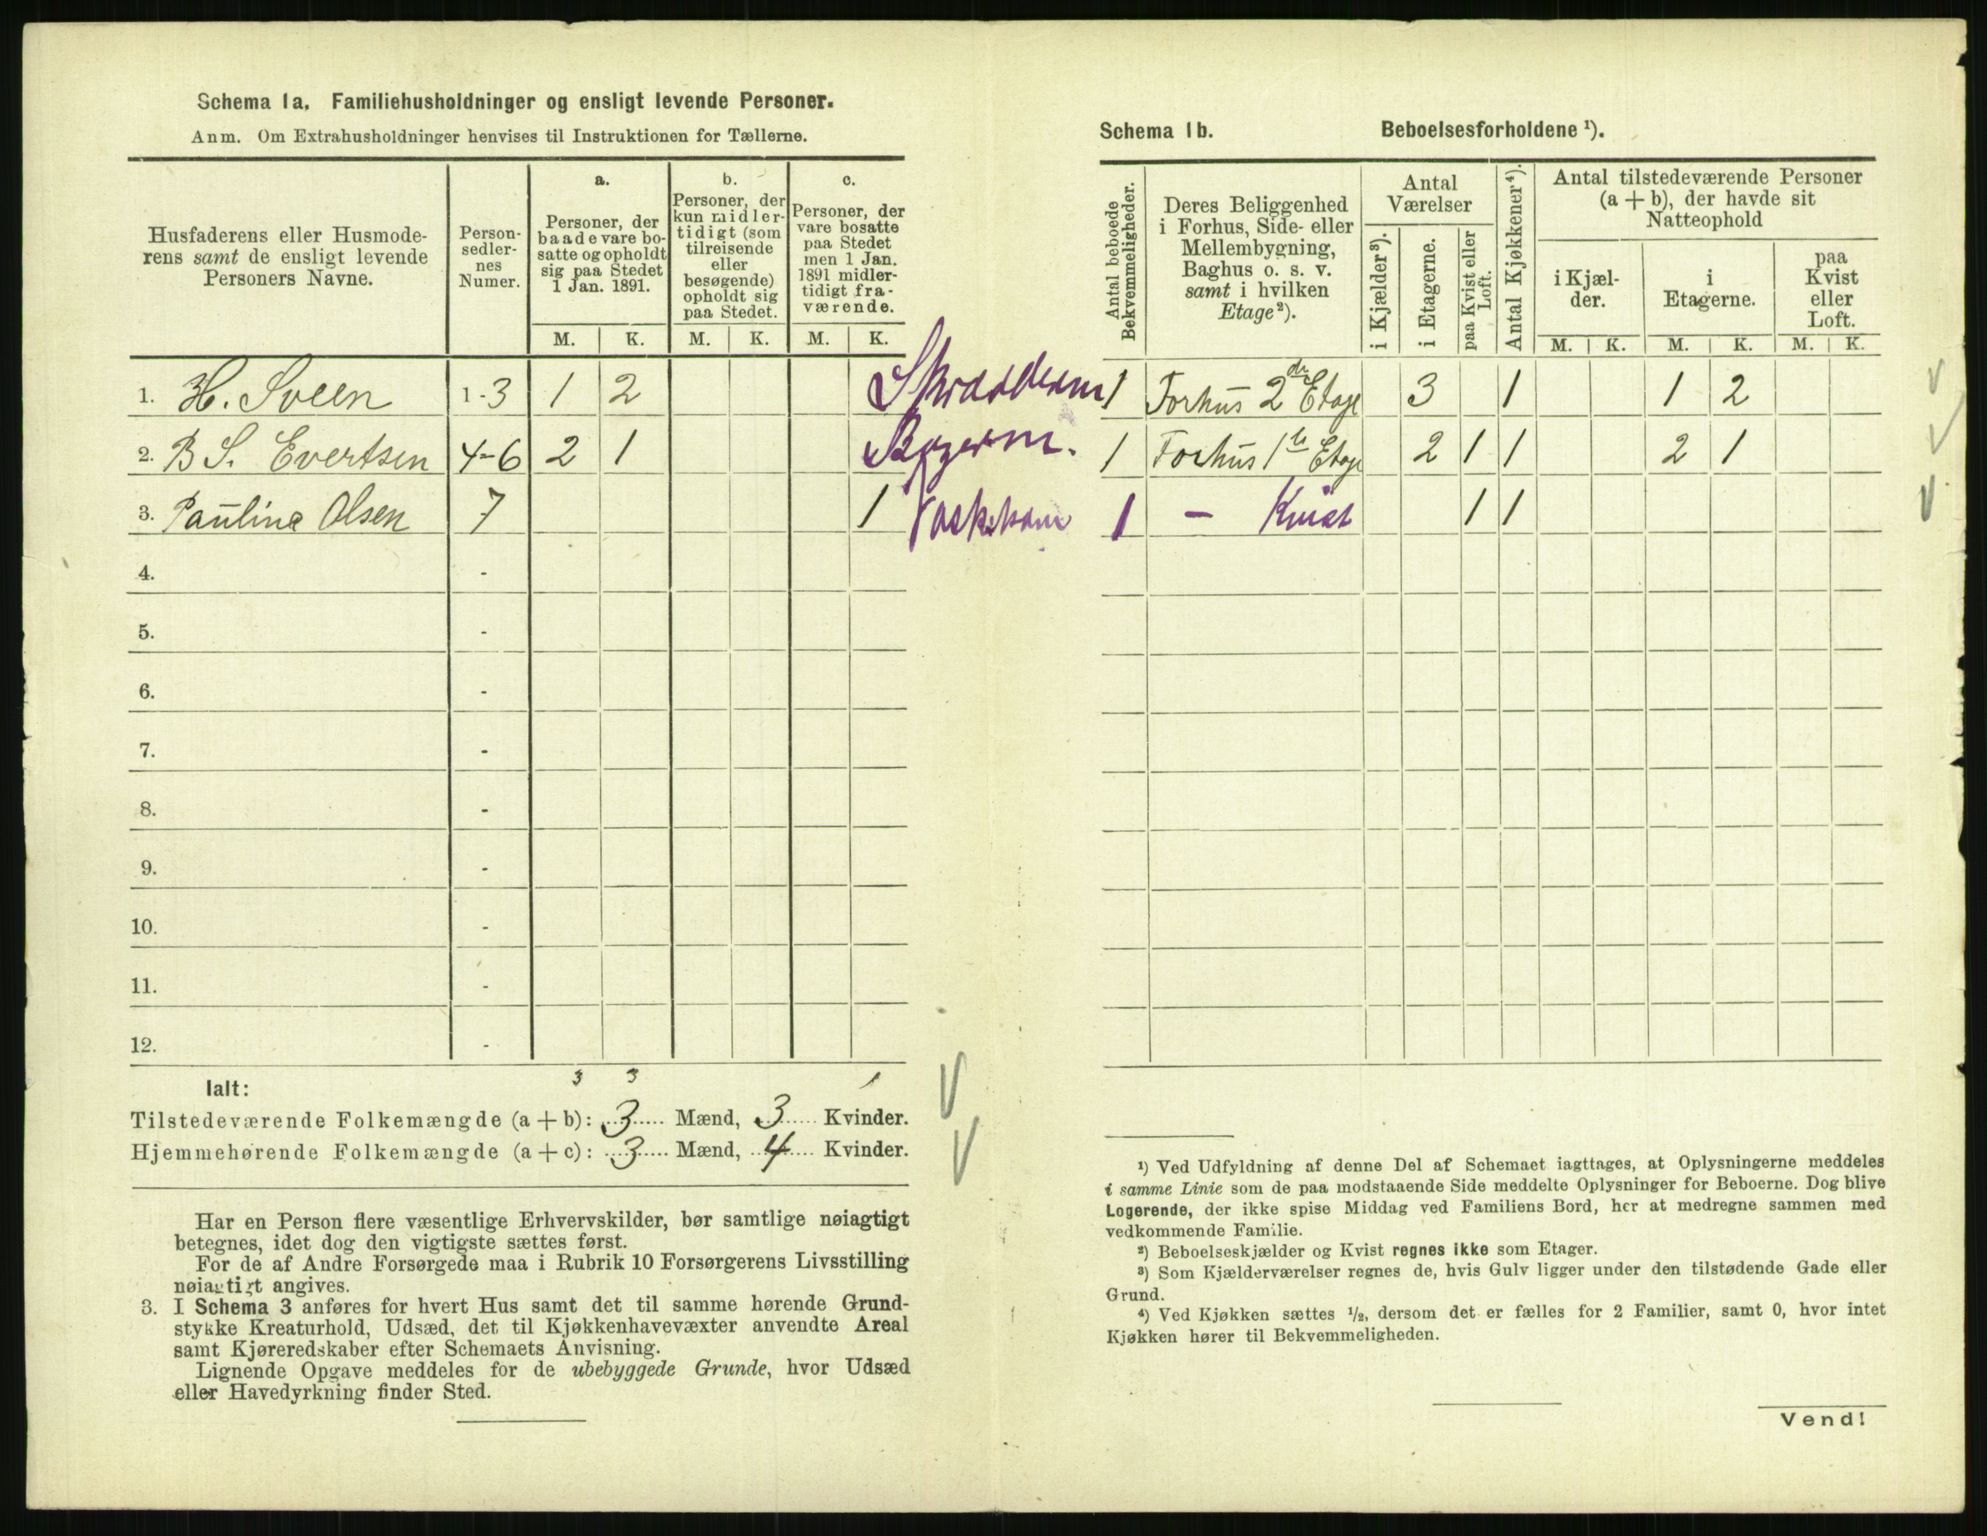 Schema 1a. Familiehusholdninger og ensligt levende Personer.
Anm. Om Extrahusholdninger henvises til Instruktionen for Tællerne.
Husfaderens eller Husmode-
rens samt de ensligt levende
Personers Navne.
Person-
sedler-
nes
Numer.
a.
Personer, der
baade vare bo-
satte og opholdt
sig paa Stedet
1 Jan. 1891.
b.
Personer, der
kun midler-
tidigt (som
tilreisende
eller
besøgende)
opholdt sig
paa Stedet.
c.
Personer, der
vare bosatte
paa Stedet
men 1 Jan.
1891 midler-
tidigt fra-
værende.
M. K. M. K. M. K.
1. H. Sveen 1-3 1 2
2. B S. Evertsen 4-6 2 1
3. Pauline Olsen 7 1
4. -
5. -
6. -
7. -
8. -
9. -
10. -
11. -
12. -
3 3 1
Ialt:
Tilstedeværende Folkemængde (a + b): 3 Mænd, 3 Kvinder.
Hjemmehørende Folkemængde (a + c): 3 Mænd, 4 Kvinder.
Har en Person flere væsentlige Erhvervskilder, bør samtlige nøiagtigt
betegnes, idet dog den vigtigste sættes først.
For de af Andre Forsørgede maa i Rubrik 10 Forsørgerens Livsstilling
nøiagtigt angives.
3. I Schema 3 anføres for hvert Hus samt det til samme hørende Grund-
stykke Kreaturhold, Udsæd, det til Kjøkkenhavevæxter anvendte Areal
samt Kjøreredskaber efter Schemaets Anvisning.
Lignende Opgave meddeles for de ubebyggede Grunde, hvor Udsæd
eller Havedyrkning finder Sted.
Schema 1b. Beboelsesforholdene ¹).
Antal beboede
Bekvemmeligheder.
Deres Beliggenhed
i Forhus, Side- eller
Mellembygning,
Baghus o. s. v.
samt i hvilken
Etage²).
Antal
Værelser
i Kjælder³).
i Etagerne.
paa Kvist eller
Loft.
Antal Kjøkkener⁴).
Antal tilstedeværende Personer
(a + b), der havde sit
Natteophold
i Kjæl-
der.
i
Etagerne.
paa
Kvist
eller
Loft.
M. K. M. K. M. K.
1 Forhus 2de Etage 3 1 1 2
1 Forhus 1te Etage 2 1 1 2 1
1 - Kvist 1 1
¹) Ved Udfyldning af denne Del af Schemaet iagttages, at Oplysningerne meddeles
i samme Linie som de paa modstaaende Side meddelte Oplysninger for Beboerne. Dog blive
Logerende, der ikke spise Middag ved Familiens Bord, her at medregne sammen med
vedkommende Familie.
²) Beboelseskjælder og Kvist regnes ikke som Etager.
³) Som Kjælderværelser regnes de, hvis Gulv ligger under den tilstødende Gade eller
Grund.
⁴) Ved Kjøkken sættes ½, dersom det er fælles for 2 Familier, samt 0, hvor intet
Kjøkken hører til Bekvemmeligheden.
Vend!